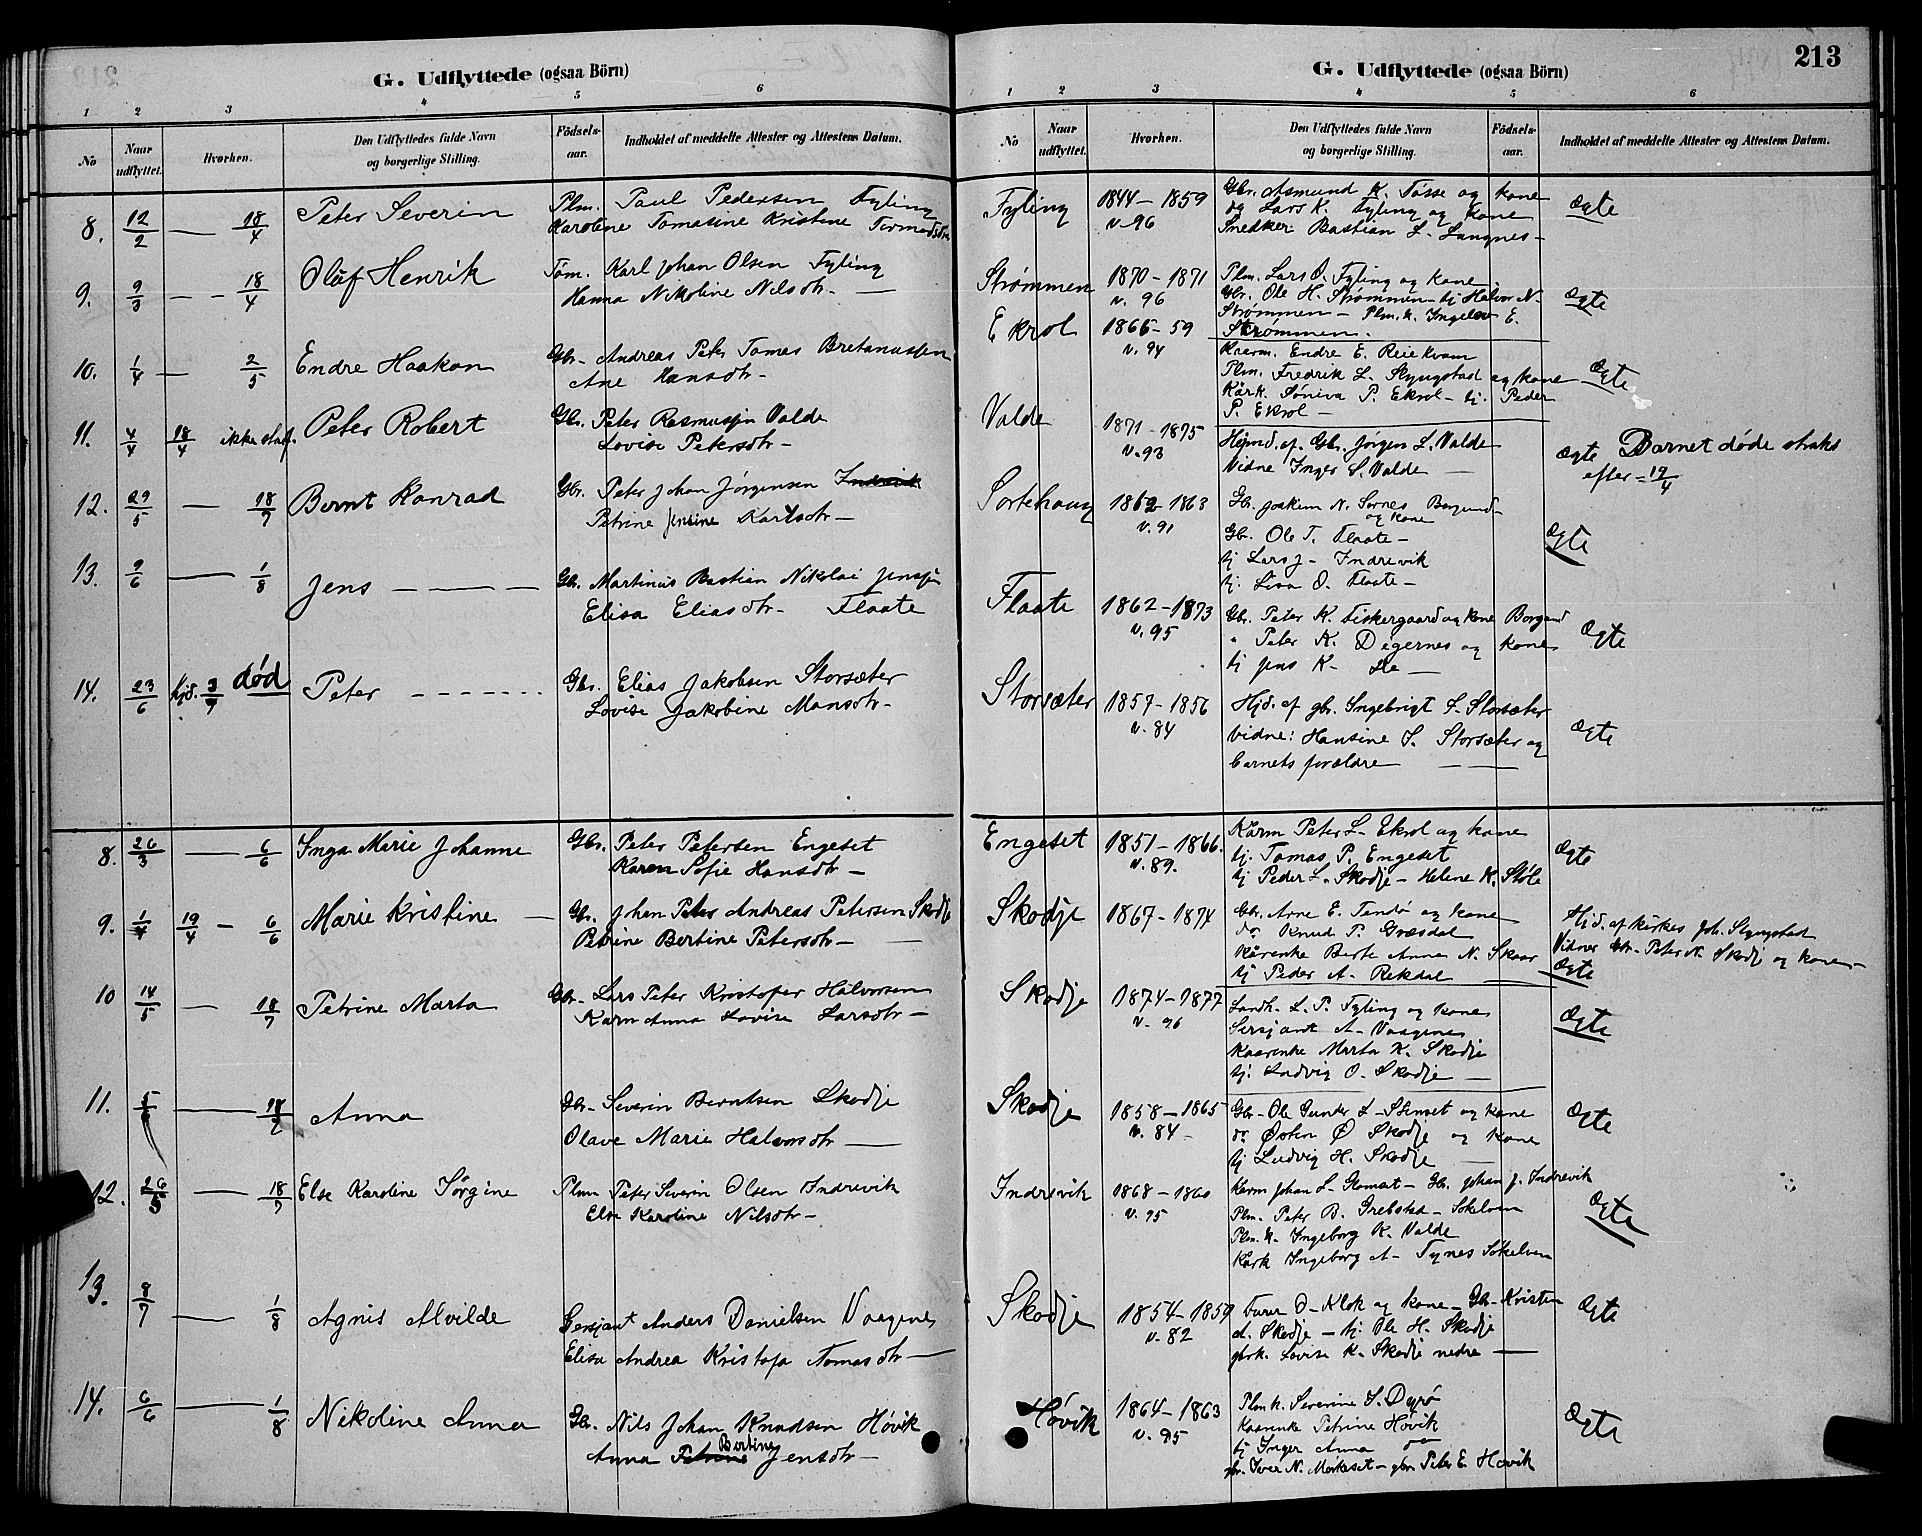 G. Udflyttede (ogsaa Börn)
1 2 3 4 5 6
No
Naar udflyttet.
Hvorhen.
Den Udflyttedes fulde Navn
og borgerlige Stilling.
Födsels-
aar.
Indholdet af meddelte Attester og Attestens Datum.
8. 12/2 — 18/4 Peter Severin Plm. Paul Pedersen Fyling
Karoline Tomasine Kristine
9. 9/3 — 18/4 Oluf Henrik Tom. Karl Johan Olsen Fyling
Hanna Nikoline Nilsdtr. —
10. 1/4 — 2/5 Endre Haakon Gbr. Andreas Peter Tomas Bretanussen
Ane Hansdtr —
11. 4/4 18/4 ikke staf. Peter Robert Gbr. Peter Rasmussen Valde
Lovise Petersdtr —
12. 29/5 — 18/7 Bernt Konrad Gbr. Peter Johan Jørgensen Indrevik
Petrine Jensine Karlsdtr —
13. 9/6 — 1/8 Jens — — — Gbr. Martinus Bastian Nikolai Jenssen
Elisa Eliasdtr — Flaate
14. 23/6 Hjd. 3/7 død Peter - - - - - - - Gbr. Elias Jakobsen Storsæter
Lovise Jakobine Monsdtr —
8. 26/3 — 6/6 Inga Marie Johanne Gbr. Peter Petersen Engeset
Karen Sofie Hansdtr —
9. 1/4 19/4 — 6/6 Marie Kristine — Gbr. Johan Peter Andreas Petersen Skodje
Petrine Bertine Petersdtr —
10 14/5 — 18/7 Petrine Marta Gbr. Lars Peter Kristofer Halvorsen
Karn Anna Lovise Larsdtr —
11. — 18/7 Anna Gbr. Severin Berntsen Skodje
Olave Marie Halvorsdtr —
12. 26/5 — 18/7 Else Karoline Jørgine Plm Peter Severin Olsen Indrevik
Else Karoline Nilsdtr —
13. 8/7 — 1/8 Agnis Alvilde Sersjant Anders Danielsen Vaagenes
Elisa Andrea Kristofa Tomasdtr —
14. 6/6 — 1/8 Nikoline Anna Gbr. Nils Johan Knudsen Høvik
Bertine
Anna Petrine Jensdtr —
G. Udflyttede (ogsaa Börn)
213
1 2 3 4 5 6
No
Naar udflyttet.
Hvorhen.
Den Udflyttedes fulde Navn
og borgerlige Stilling.
Födsels-
aar.
Indholdet af meddelte Attester og Attestens Datum.
Fyling 1844 – 1859 Gbr. Asmund K. Tøsse og kone Ægte
v. 96 og Lars K. Fyling og kone
Snedker Bastian L. Langnes –
Strømmen 1870 – 1871 Plm. Lars O. Fyling og kone
v. 96 Gbr. Ole H. Strømmen – tj Halvor N. Ægte
Strømmen – Plm. k. Ingeleiv E.
Ekrol 1866 – 59 Strømmen.
v. 94 Kaarm. Endre E. Reiekvam
Plm. Fredrik L. Slyngstad og kone Ægte
Kårk. Søniva P. Ekrol – tj. Peder
P. Ekrol —
Valde 1871 – 1875
v. 93 Hjmd. af Gbr. Jørgen L. Valde Ægte Barnet døde straks
Vidne Inger S. Valde — efter – 19/4
Sortehaug 1862 – 1863 Gbr. Joakim N. Sørnes Borgund –
v. 91 og kone
Gbr. Ole T. Flaate – Ægte
tj Lars J – Indrevik
tj. Lisa O. Flaate –
Flaate 1862 – 1873 Gbr. Peter K. Fiskergaard og kone Borgund
v. 95 " Peter K. Digernes og kone Ægte
tj Jens K – De —
Storsæter 1857 – 1856 Hjd. af gbr. Ingebrigt S. Storsæter
v. 84 Vidne: Hansine S. Storsæter og Ægte
barnets forældre —
Engeset 1851 – 1866. Kårm Peter L. Ekrol og kone
v. 89. tj. Tomas P. Engeset Ægte
tj Peder L. Skodje – Helene K. Støle
Skodje 1867 – 1874 Gbr. Arne E. Tendø og kone Hjd. af kirkes. Joh. Slyngstad
do Knud P. Græsdal Vidner Gbr. Peter N. Skodje og kone –
Kårenke Berte Anna N. Skaar Ægte
tj Peder A. Rekdal —
Skodje 1874 – 1877 Landh. L. P. Fyling og kone Ægte
v. 96 Sersjant A. Vaagenes
Kaarenke Marta K. Skodje
tj. Ludvig O. Skodje —
Skodje 1858 – 1865 Gbr. Ole Gunder L. Stenset og kone Ægte
v. 84 – do Østen Ø Skodje og kone
tj Ludvig H. Skodje —
Indrevik 1868 – 1860 Kårm Johan L. Glomset – Gbr. Johan J. Indrevik
v. 95 Plm. Peter B. Grebstad – Søkelven Ægte
Plm. k. Ingeborg K. Valde
Kårk Ingeborg A – Tynes Søkelven
Skodje 1854 – 1859 Furer O – Klok og kone – Gbr – Kristen Ægte
v. 82 A. Skodje – tj. Ole H. Skodje
gbrk. Lovise K. Skodje nedre —
Høvik 1864 – 1863 Plm k. Severine S. Dyrø
v. 95 Kaarenke Petrine Høvik Ægte
tj Inger Anna do
gbr. Iver N. Mørkeset – gbr. Peter E. Høvik